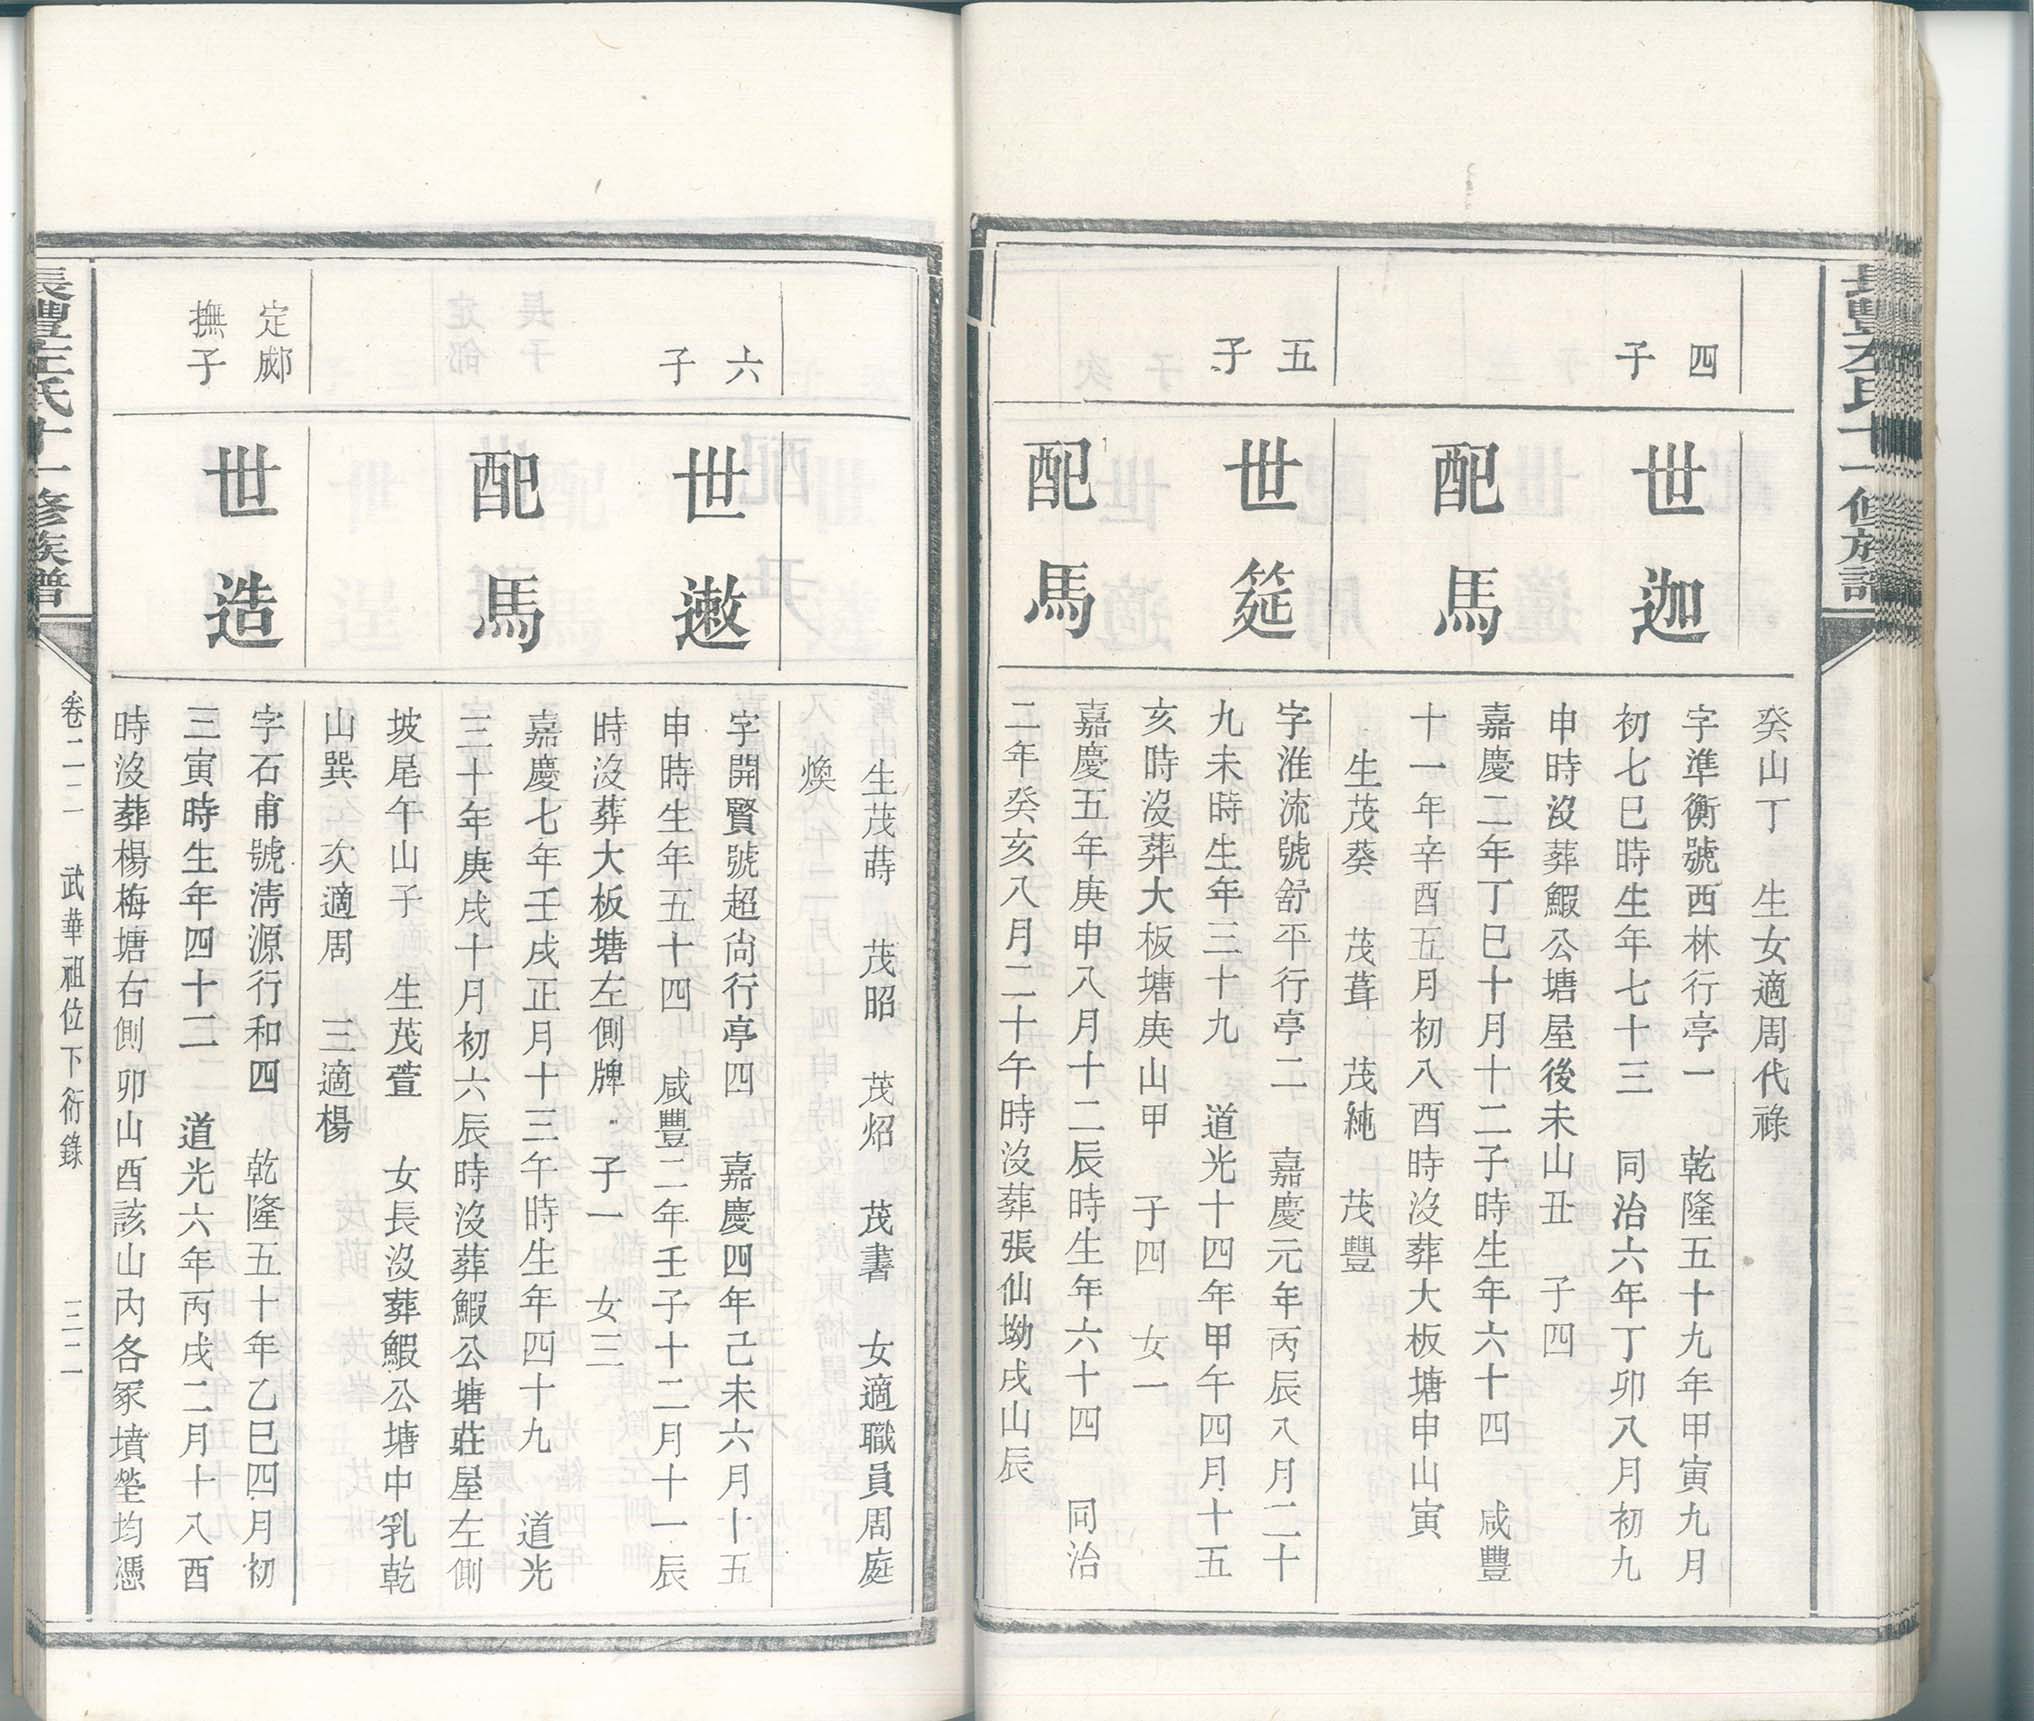 癸山丁　生女適周代祿
四子
世迦
字準衡號西林行亭一　乾隆五十九年甲寅九月
初七巳時生年七十三　同治六年丁卯八月初九
申時沒葬鰕公塘屋後未山丑　子四
配馬
嘉慶二年丁巳十月十二子時生年六十四　咸豐
十一年辛酉五月初八酉時沒葬大板塘申山寅
生茂葵　茂葺　茂純　茂豐
五子
世筵
字淮流號舒平行亭二　嘉慶元年丙辰八月二十
九未時生年三十九　道光十四年甲午四月十五
亥時沒葬大板塘庚山甲　子四　女一
配馬
嘉慶五年庚申八月十二辰時生年六十四　同治
二年癸亥八月二十午時沒葬張仙坳戌山辰
生茂蒔　茂昭　茂炤　茂書　女適職員周庭
煥
六子
世遬
字開賢號超尙行亭四　嘉慶四年己未六月十五
申時生年五十四　咸豐二年壬子十二月十一辰
時沒葬大板塘左側牌　子一　女三
配馬
嘉慶七年壬戌正月十三午時生年四十九　道光
三十年庚戌十月初六辰時沒葬鰕公塘莊屋左側
坡尾午山子　生茂萱　女長沒葬鰕公塘中乳乾
山巽　次適周　三適楊
定郕
撫子
世造
字石甫號淸源行和四　乾隆五十年乙巳四月初
三寅時生年四十二　道光六年丙戌二月十八酉
時沒葬楊梅塘右側卯山酉該山內各冢墳塋均憑
長豐左氏十一修族譜
卷二二　武華祖位下衍錄　三二